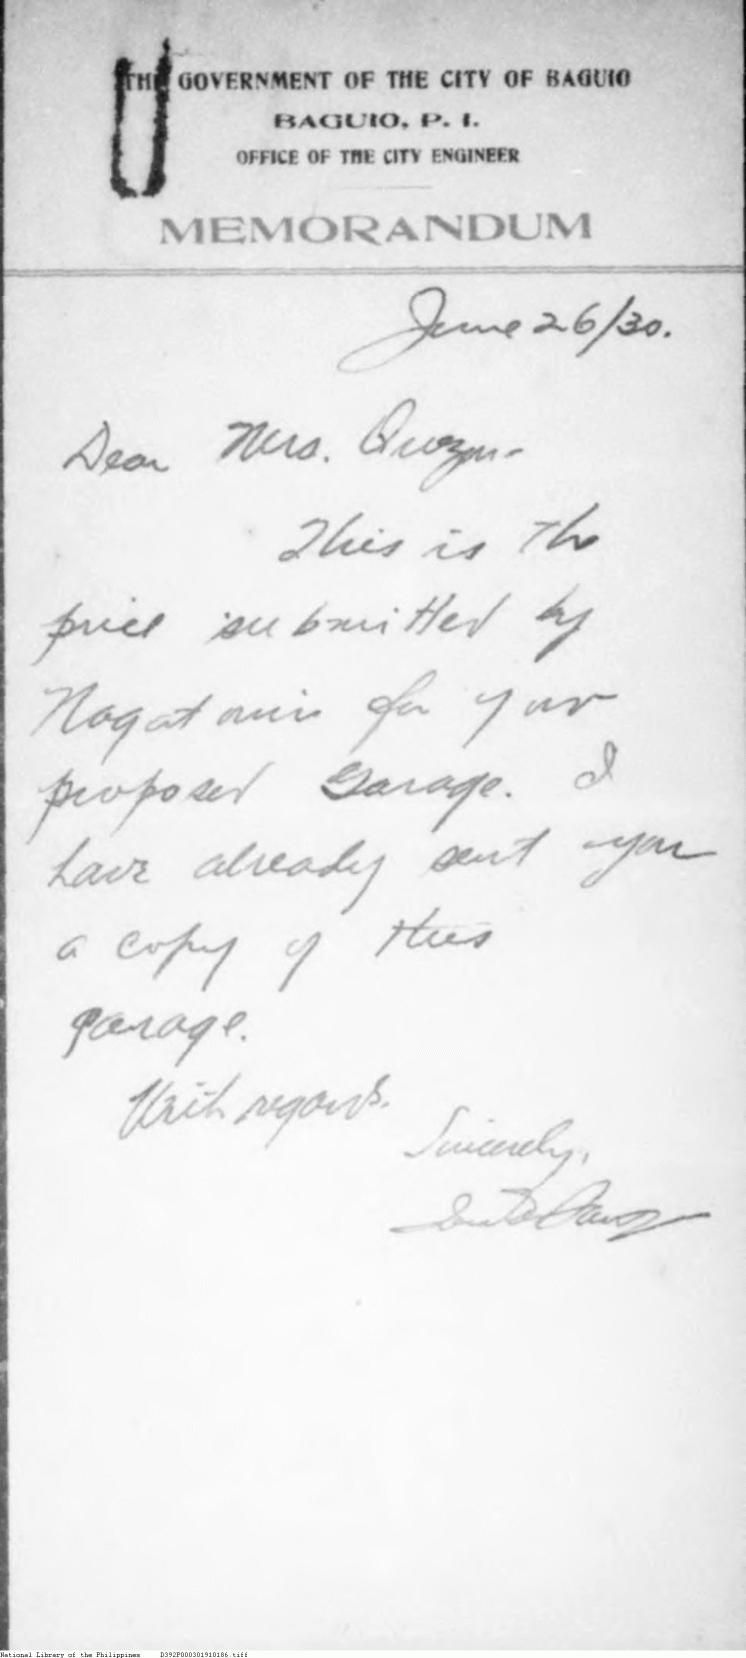 THE GOVERNMENT OF THE CITY OF BAGUIO
BAGUIO, P. I.
OFFICE OF THE CITY ENGINEER
MEMORANDUM
June 26/30.
Dear Mrs. Quezon-
This is the
price submitted by
Nagatomi for your
proposed Garage. I
have already sent you
a copy of this
garage.
With regards.
Sincerely,
National Library of the Philippines D392P000301910186.tiff